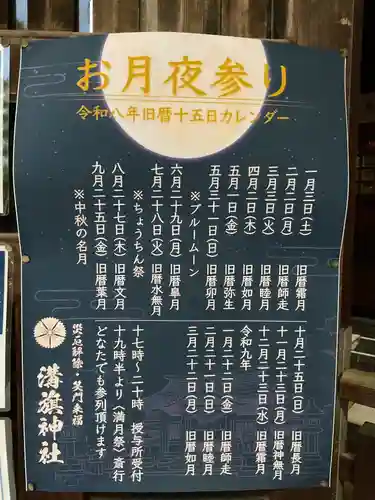 お月夜参り
令和八年旧暦十五日カレンダー
一月三日(土) 旧暦霜月
二月二日(月) 旧暦師走
三月三日(火) 旧暦睦月
四月二日(木) 旧暦如月
五月一日(金) 旧暦弥生
五月三十一日(日) 旧暦卯月
※ブルームーン
六月二十九日(月) 旧暦皐月
七月二十八日(火) 旧暦水無月
※ちょうちん祭
八月二十七日(木) 旧暦文月
九月二十五日(金) 旧暦葉月
※中秋の名月
十月二十五日(日) 旧暦長月
十一月二十三日(月) 旧暦神無月
十二月二十三日(水) 旧暦霜月
令和九年
一月二十二日(金) 旧暦師走
二月二十一日(日) 旧暦睦月
三月二十二日(月) 旧暦如月
十七時〜二十時 授与所受付
十九時半より〈満月祭〉斎行
どなたでも参列頂けます
災厄解除・笑門来福
溝旗神社